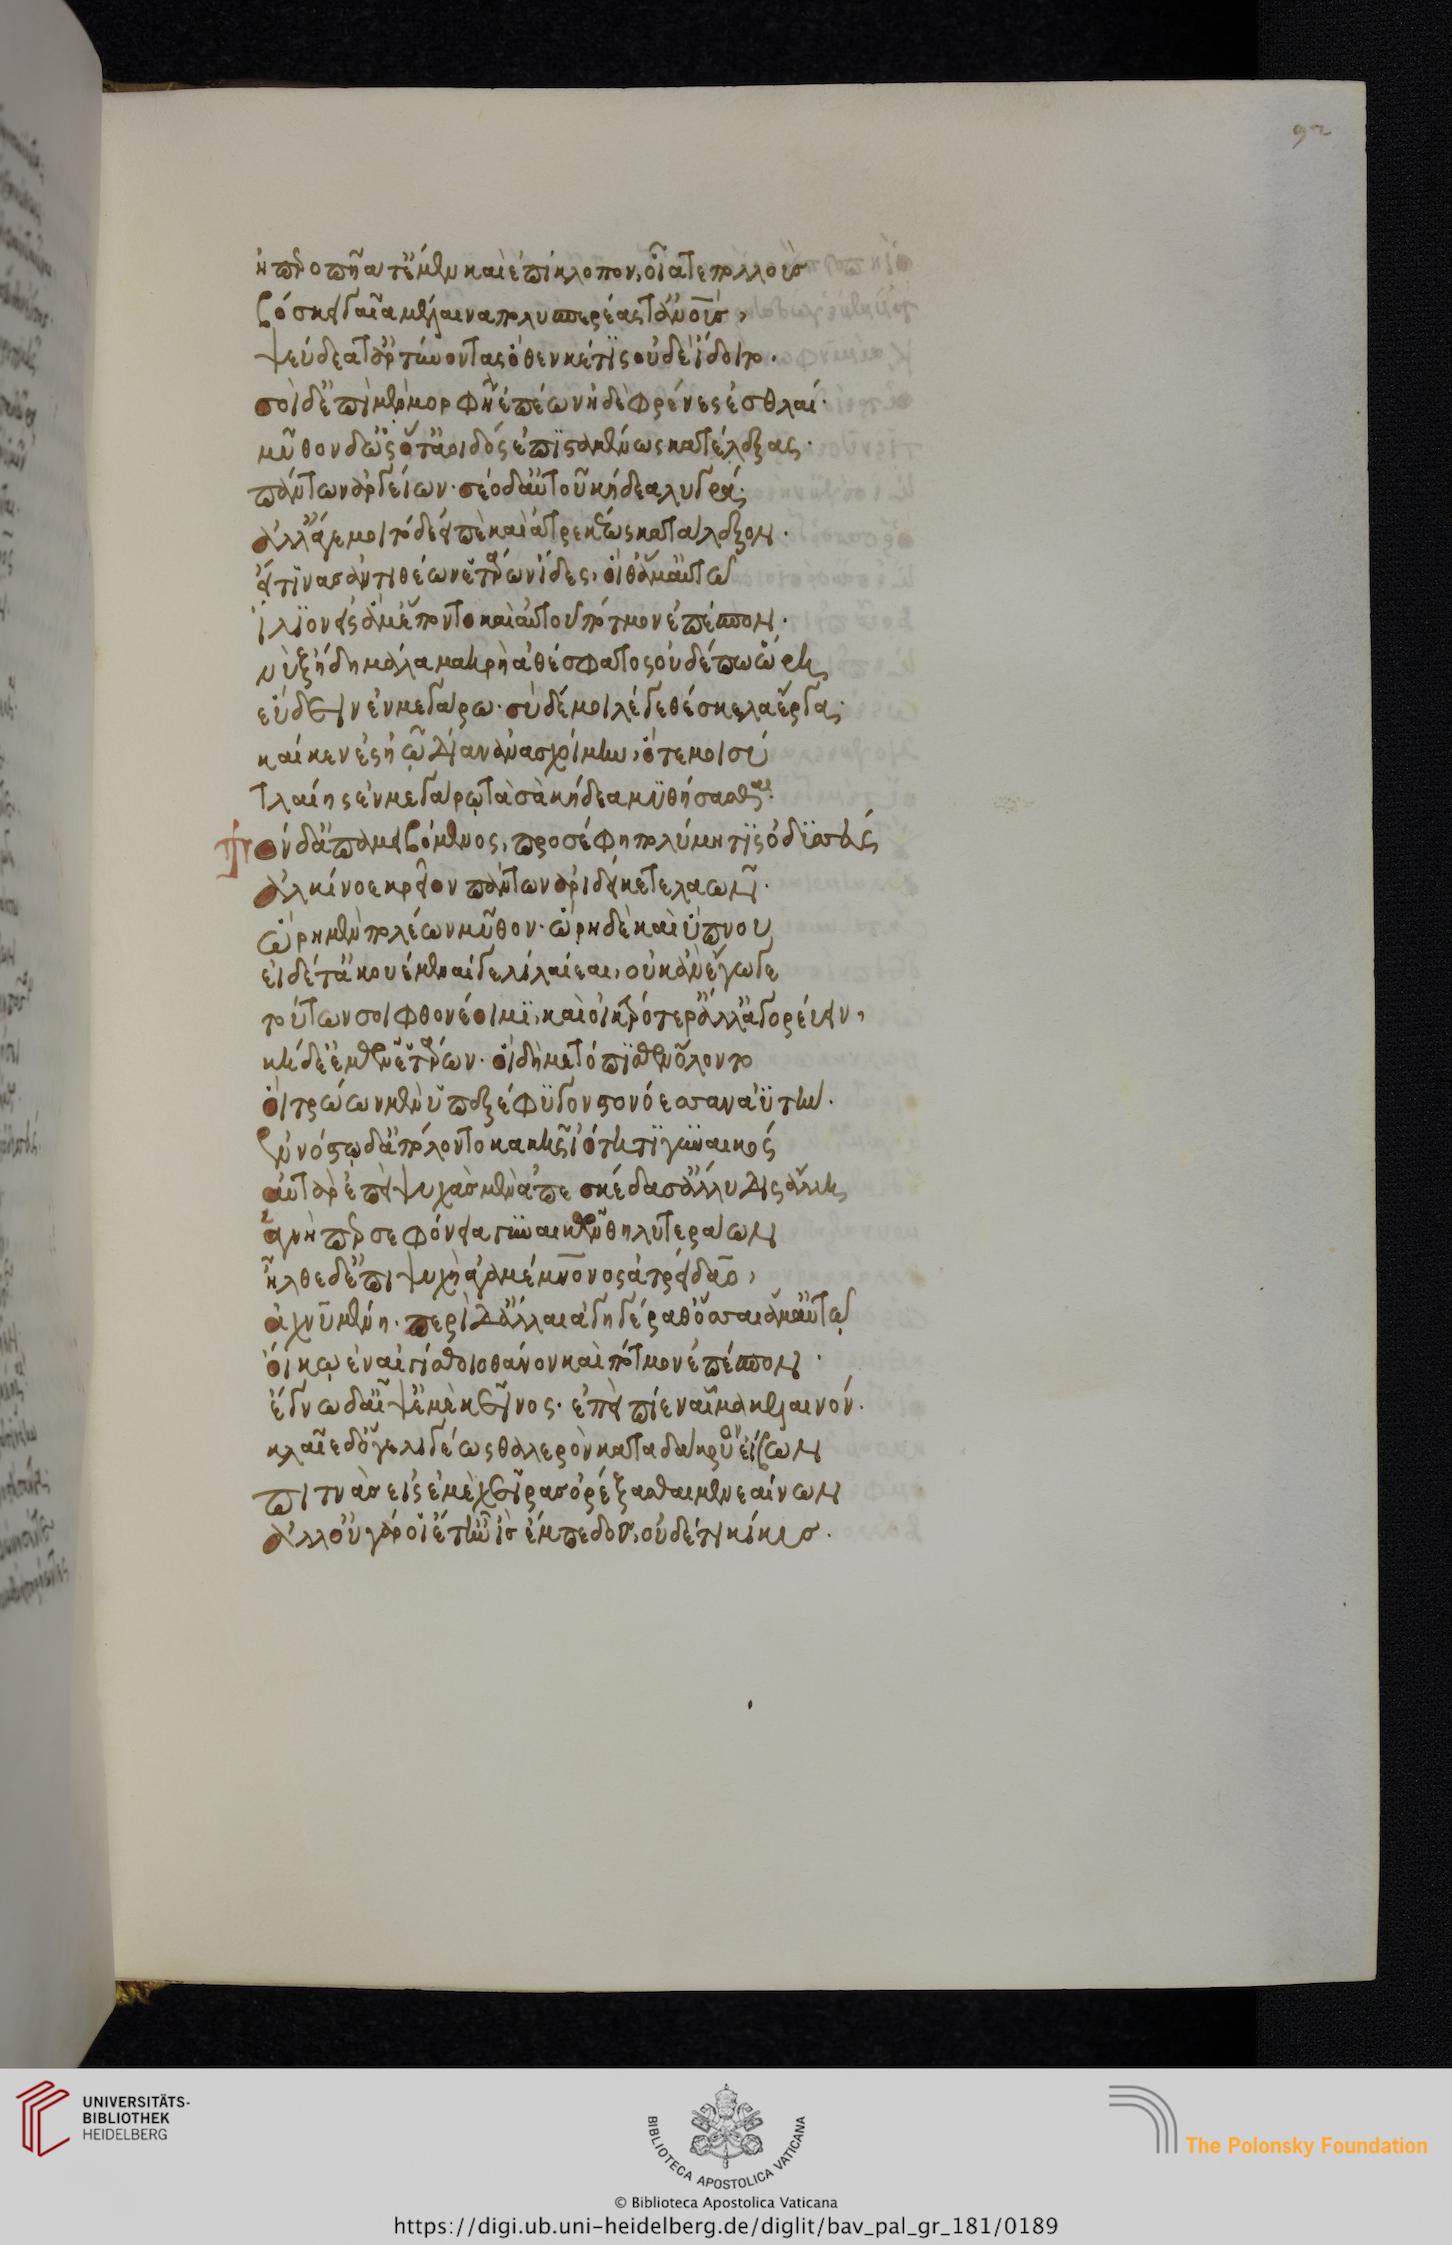 92
ἠπεροπῆα τ' ἔμεν καὶ ἐπίκλοπον, οἷά τε πολλοὺς
βόσκει γαῖα μέλαινα πολυσπερέας τ' ἀνους,
ψεύδεα τ' ἀρτύνοντας ὅθεν κέ τις οὐδὲ ἴδοιτο.
σοὶ δ' ἔπι μὲν μορφὴ ἐπέων ἠδὲ φρένες ἐσθλαί.
μῦθον δ' ὡς ὅτ' ἀοιδὸς ἐπισταμένως κατέλεξας.
πάντων ἀργείων. σέο δ' αὐτοῦ κήδεα λυγρά.
ἀλλ' ἄγε μοι τόδε εἰπὲ καὶ ἀτρεκέως κατάλεξον.
εἴ τινας ἀντιθέων ἑτάρων ἴδες, οἵ θ' ἅμ' αὐτῶ
ἴλιον εἰς ἅμ' ἕποντο καὶ αὐτοῦ πότμον ἐπέσπον.
νὺξ ἤδη μάλα μακρὴ ἀθέσφατος οὐδέ πω ὥρη
εὕδειν ἐν μεγάρω. σὺ δέ μοι λέγε θέσκελα ἔργα.
καί κεν ἐς ἠῶ δῖαν ἀνασχοίμην, ὅτε μοι σύ
τλαίης ἐν μεγάρῳ τὰ σὰ κήδεα μυθήσασθαι.
τὸν δ' ἀπαμειβόμενος, προσέφη πολύμητις ὀδυσσεύς
ἀλκίνοε κρεῖον πάντων ἀριδείκετε λαῶν.
ὥρη μὲν πολέων μῦθον. ὥρη δὲ καὶ ὕπνου
εἰ δέ τ' ἀκουέμεναί γε λιλαίεαι, οὐκ ἂν ἔγωγε
τούτων σοι φθονέοιμι, καὶ οἰκτρότερ' ἄλλ' ἀγορεύειν,
κήδε' ἐμῶν ἑτάρων. οἳ δὴ μετόπισθεν ὄλοντο
οἳ τρώων μὲν ὑπεξέφυγον στονόεσσαν ἀϋτήν.
ἐν νόστῳ δ' ἀπόλοντο κακῆς ἰότητι γυναικός
αὐτὰρ ἐπεὶ ψυχὰς μὲν ἀπεσκέδασ' ἄλλυδις ἄλλη
ἁγνὴ περσεφόνεια γυναικῶν θηλυτεράων
ἦλθε δ' ἐπὶ ψυχὴ ἀγαμέμνονος ἀτρείδαο,
ἀχνυμένη. περὶ δ' ἄλλαι ἀγηγέραθ' ὅσσαι ἅμ' αὐτῷ
οἴκῳ ἐν αἰγίσθοιο θάνον καὶ πότμον ἐπέσπον.
ἔγνω δ' αἶψ' ἐμὲ κεῖνος. ἐπεὶ πίεν αἷμα κελαινόν.
κλαῖε δ' ὅγε λιγέως θαλερὸν κατὰ δάκρυον εἴβων
πιτνὰς εἰς ἐμὲ χεῖρας ὀρέξασθαι μενεαίνων
ἀλλ' οὐ γάρ οἱ ἔτ' ἦν ἲς ἔμπεδος, οὐδέ τι κίκυς.
UNIVERSITÄTS-
BIBLIOTHEK
HEIDELBERG
BIBLIOTECA APOSTOLICA VATICANA
The Polonsky Foundation
© Biblioteca Apostolica Vaticana
https://digi.ub.uni-heidelberg.de/diglit/bav_pal_gr_181/0189